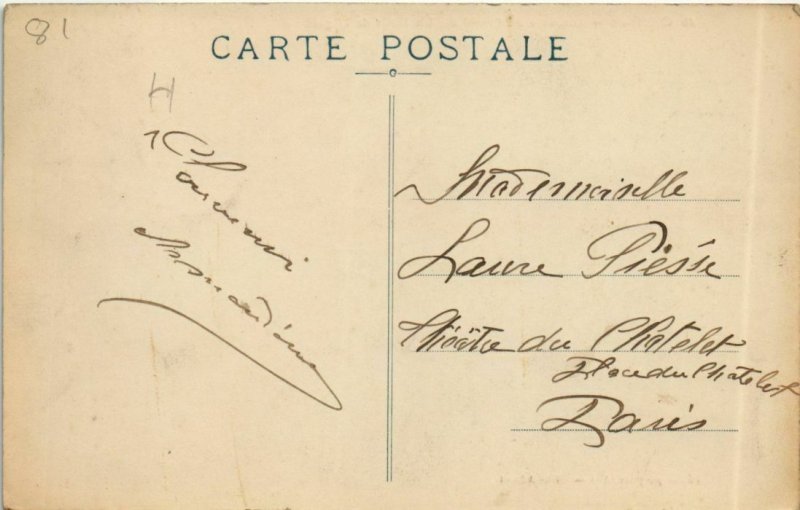 81
CARTE POSTALE
H
Souvenir
Mademoiselle
Laure Piésse
Théâtre du Châtelet
Place du Chatelet
Paris